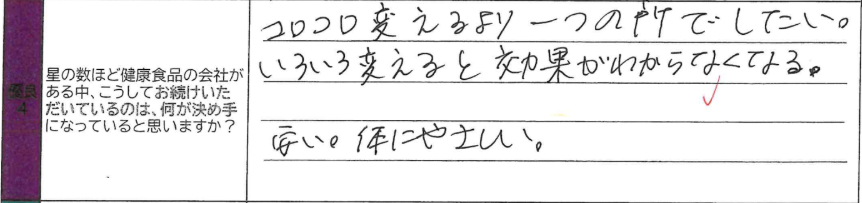 優良
4
星の数ほど健康食品の会社が
ある中、こうしてお続けいた
だいているのは、何が決め手
になっていると思いますか？
コロコロ変えるより一つの所でしたい。
いろいろ変えると効果がわからなくてよる。
安い。体にやさしい。